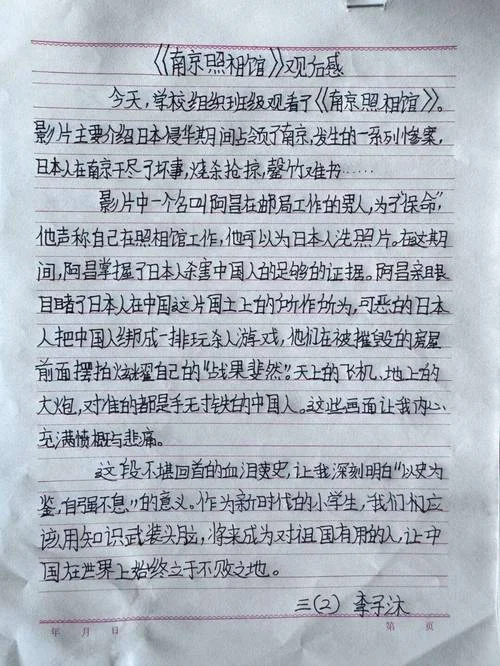 《南京照相馆》观后感
今天，学校组织班级观看了《南京照相馆》。
影片主要介绍日本侵华期间占领了南京，发生的一系列惨案，
日本人在南京干尽了坏事，烧杀抢掠，罄竹难书……
影片中一个名叫阿昌在邮局工作的男人，为了“保命”，
他声称自己在照相馆工作，他可以为日本人洗照片。在这期
间，阿昌掌握了日本人杀害中国人的足够的证据。阿昌亲眼
目睹了日本人在中国这片国土上的所作所为，可恶的日本
人把中国人绑成一排玩杀人游戏，他们在被摧毁的房屋
前面摆拍炫耀自己的“战果斐然”。天上的飞机、地上的
大炮，对准的都是手无寸铁的中国人。这些画面让我内心
充满愤概与悲痛。
这段不堪回首的血泪凄史，让我深刻明白“以史为
鉴，自强不息”的意义。作为新时代的小学生，我们相应
该用知识武装头脑，将来成为对祖国有用的人，让中
国在世界上始终立于不败之地。
三（2） 李子沐
年 月 日 第 页